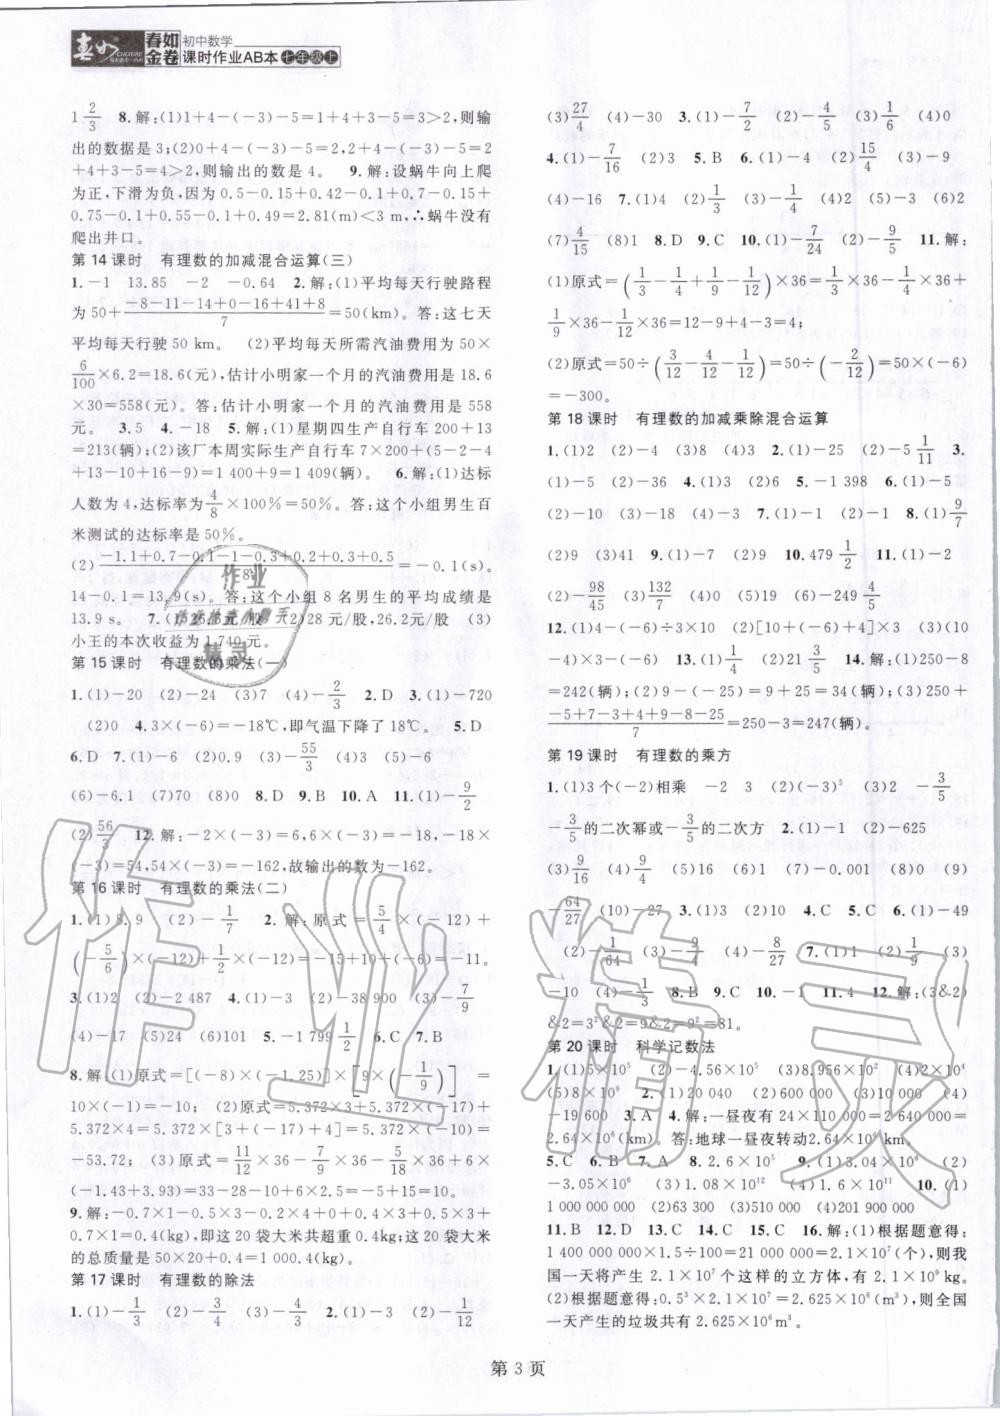 春如金卷 初中数学
课时作业AB本 七年级上
1 2/3 8.解:(1)1+4-(-3)-5=1+4+3-5=3>2,则输
出的数据是3;(2)0+4-(-3)-5=2,2+4-(-3)-5=
2+4+3-5=4>2,则输出的数是4。 9.解:设蜗牛向上爬
为正,下滑为负,因为0.5-0.15+0.42-0.1+0.7-0.15+
0.75-0.1+0.55-0+0.48=2.81(m)<3 m,∴蜗牛没有
爬出井口。
第14课时 有理数的加减混合运算(三)
1.-1 13.85 -2 -0.64 2.解:(1)平均每天行驶路程
为50+(-8-11-14+0-16+41+8)/7=50(km)。答:这七天
平均每天行驶50 km。 (2)平均每天所需汽油费用为50×
6/100×6.2=18.6(元),估计小明家一个月的汽油费用是18.6
×30=558(元)。答:估计小明家一个月的汽油费用是558
元。 3.5 4.-18 5.解:(1)星期四生产自行车200+13
=213(辆);(2)该厂本周实际生产自行车7×200+(5-2-4
+13-10+16-9)=1 400+9=1 409(辆)。 6.解:(1)达标
人数为4,达标率为4/8×100%=50%。答:这个小组男生百
米测试的达标率是50%。
(2)(-1.1+0.7-0.1-1-0.3+0.2+0.3+0.5)/8=-0.1(s)。
14-0.1=13.9(s)。答:这个小组8名男生的平均成绩是
13.9 s。 7.(1)26.5元/股 (2)28元/股,26.2元/股 (3)
小王的本次收益为1 740元。
第15课时 有理数的乘法(一)
1.(1)-20 (2)-24 (3)7 (4)-2/3 2.D 3.(1)-720
(2)0 4.3×(-6)=-18℃,即气温下降了18℃。 5.D
6.D 7.(1)-6 (2)0.9 (3)-55/3 (4)3 (5)-6
(6)-6.1 (7)70 (8)0 8.D 9.B 10.A 11.(1)-9/2
(2)56/3 12.解:-2×(-3)=6,6×(-3)=-18,-18×
(-3)=54,54×(-3)=-162,故输出的数为-162。
第16课时 有理数的乘法(二)
1.(1)8.9 (2)-1/7 2.解:原式=5/4×(-12)+
(-5/6)×(-12)+1/2×(-12)=-15+10+(-6)=-11。
3.(1)2 (2)-2 487 4.(1)-30 (2)-38 900 (3)-7/9
(4)-17 (5)24 (6)101 5.-1 799 1/2 6.C 7.B
8.解:(1)原式=[(-8)×(-1.25)]×[9×(-1/9)]=
10×(-1)=-10; (2)原式=5.372×3+5.372×(-17)+
5.372×4=5.372×[3+(-17)+4]=5.372×(-10)=
-53.72; (3)原式=11/12×36-7/9×36+5/18×36+6×
(-1.43+3.93)=33-28-10+6×(-2.5)=-5+15=10。
9.解:-0.7×1-0.5×3-0.2×4+0+0.4×3+0.5×3+
0.7×1=0.4(kg),即这20袋大米共超重0.4kg;这20袋大米
的总质量是50×20+0.4=1 000.4(kg)。
第17课时 有理数的除法
1.(1)-1/3 (2)-3/4 (3)-4/3 2.(1)-3 (2)-1/12
(3)27/4 (4)-30 3.(1)-7/2 (2)-4/5 (3)1/6 (4)0
4.(1)-7/16 (2)3 5.B 6.(1)-4 (2)15/4 (3)-9
(4)-16 7.(1)4 (2)1/3 (3)-1/4 (4)2 (5)-3 (6)2
(7)4/15 (8)1 8.D 9.C 10.(1)-7/24 (2)-9/5 11.解:
(1)原式=(1/3+1/4-1/9-1/12)×36=1/3×36-1/4×36+
1/9×36-1/12×36=12-9+4-3=4;
(2)原式=50÷(3/12-4/12-1/12)=50÷(-2/12)=50×(-6)
=-300。
第18课时 有理数的加减乘除混合运算
1.(1)2 (2)-4 (3)8 (4)3 2.(1)-25 (2)-5 1/11 3.
(1)-5 (2)-36 4.(1)B (2)C 5.-1 398 6.(1)-5
(2)-10 (3)-18 (4)-3 7.(1)-1 (2)-1 8.(1)9/7
(2)9 (3)41 9.(1)-7 (2)9 10.479 1/2 11.(1)-2
(2)-98/45 (3)132/7 (4)6 (5)-2 (6)-249 4/5
12.(1)4-(-6)÷3×10 (2)[10+(-6)+4]×3 (3)10-
(-6)×3-(-4) 13.(1)1/4 (2)3/5 14.解:(1)250-8
=242(辆); (2)25-(-9)=9+25=34(辆); (3)250+
(-5+7-3+4+9-8-25)/7=250-3=247(辆)。
第19课时 有理数的乘方
1.(1)3个(-2)相乘 -2 3 (2)(-3)⁵ (3)2 -3/5
-3/5的二次幂或-3/5的二次方 2.(1)-1 (2)-625
(3)9 (4)-9 (5)9/16 (6)9/4 (7)-0.001 (8)0 (9)
-64/27 (10)-27 3.(1)2 (2)10 4.C 5.C 6.(1)-49
(2)-1/64 (3)-9/4 (4)-8/27 7.(1)1 (2)1/9 (3)
-10 (4)-1/3 8.B 9.C 10.-1 11.4 12.解:(3&2)
&2=3²&2=9&2=9²=81。
第20课时 科学记数法
1.(1)5×10⁵ (2)-4.56×10⁵ (3)8.956×10² (4)2×10⁴
(5)8×10⁹ 2.(1)20 040 (2)600 000 (3)720 000 (4)
-19 600 3.A 4.解:一昼夜有24×110 000=2 640 000=
2.64×10⁶(km)。答:地球一昼夜转动2.64×10⁶ km。
5.C 6.B 7.A 8.2.6×10⁵ 9.(1)3.04×10⁶ (2)
-3.05×10⁶ (3)1.08×10¹² (4)1.6×10¹¹ 10.(1)
1 000 000 000 (2)63 300 (3)-210 000 (4)201 900 000
11.B 12.D 13.C 14.C 15.C 16.解:(1)根据题意得:
1 400 000 000×1.5÷100=21 000 000=2.1×10⁷(个),则我
国一天将产生2.1×10⁷个这样的立方体,有2.1×10⁹ kg。
(2)根据题意得:0.5³×2.1×10⁷=2.625×10⁶(m³),则全国
一天产生的垃圾共有2.625×10⁶m³。
第3页
作业精灵